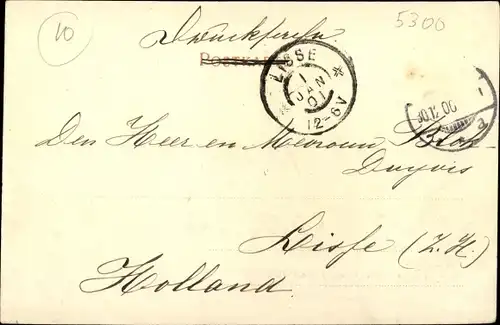 10
5300
Drucksache
POSTKARTE
LISSE
1
JAN
01
12-6V
30.12.00
1
a
Den Heer en Mevrouw Blom-
Duyvis
Lisse (Z.H.)
Holland